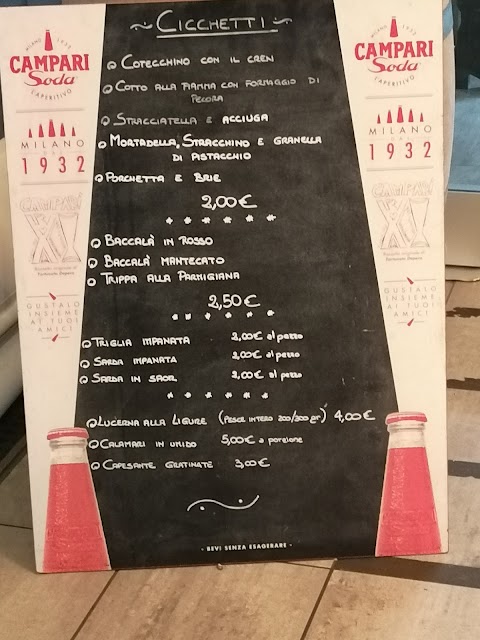 CICCHETTI
COTECCHINO CON IL CREN
COTTO ALLA FIAMMA CON FORMAGGIO DI
PECORA
STRACCIATELLA E ACCIUGA
MORTADELLA, STRACCHINO E GRANELLA
DI PISTACCHIO
PORCHETTA E BRIE
2,00€
BACCALÀ IN ROSSO
BACCALÀ MANTECATO
TRIPPA ALLA PARMIGIANA
2,50€
TRIGLIA IMPANATA 2,00€ al pezzo
SARDA IMPANATA 2,00€ al pezzo
SARDA IN SAOR 2,00€ al pezzo
LUCERNA ALLA LIGURE (PESCE INTERO 200/300 gr) 4,00€
CALAMARI IN UMIDO 5,00€ a porzione
CAPESANTE GRATINATE 3,00€
- BEVI SENZA ESAGERARE -
MILANO 1932
CAMPARI
Soda
L'APERITIVO
MILANO
DAL
1932
CAMPARI
GUSTALO
INSIEME
AI TUOI
AMICI
MILANO 1932
CAMPARI
Soda
L'APERITIVO
MILANO
DAL
1932
CAMPARI
GUSTALO
INSIEME
AI TUOI
AMICI